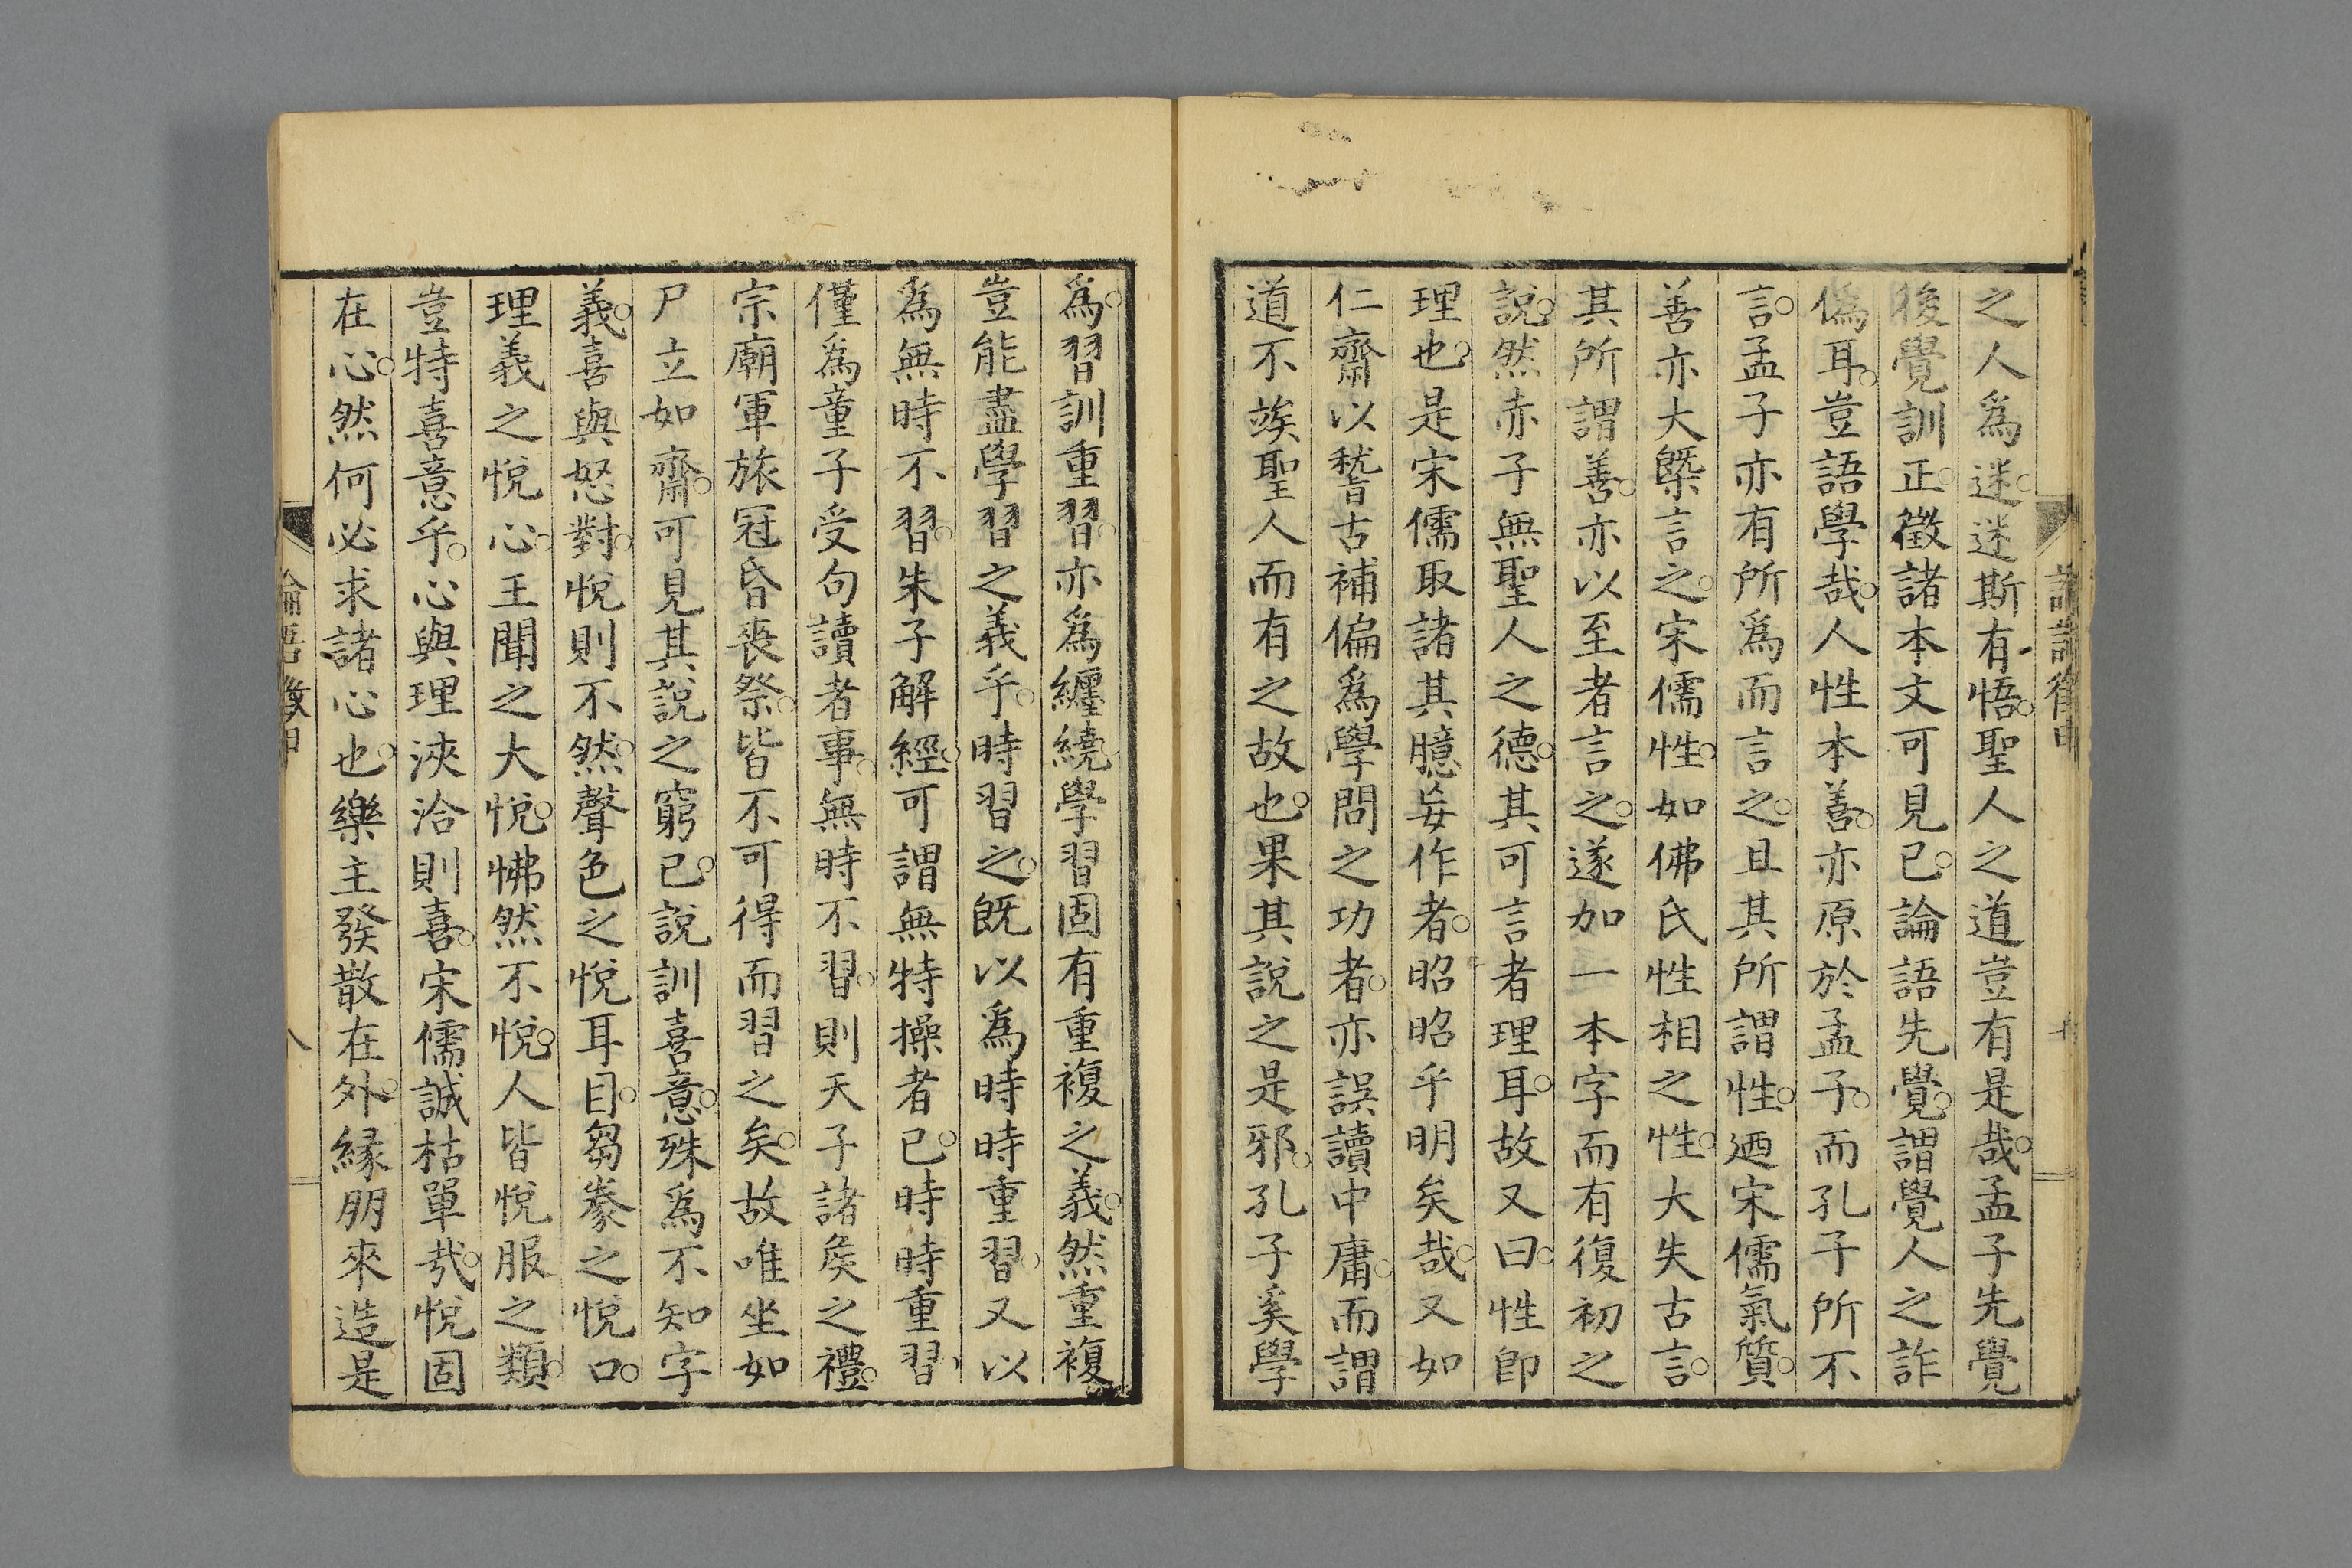 之人爲迷迷斯有悟聖人之道豈有是哉孟子先覺
後覺訓正徵諸本文可見已論語先覺謂覺人之詐
僞耳豈語學哉人性本善亦原於孟子而孔子所不
言孟子亦有所爲而言之且其所謂性迺宋儒氣質
善亦大槩言之宋儒性如佛氏性相之性大失古言
其所謂善亦以至者言之遂加一本字而有復初之
說然赤子無聖人之德其可言者理耳故又曰性卽
理也是宋儒取諸其臆妄作者昭昭乎明矣哉又如
仁齋以稽古補偏爲學問之功者亦誤讀中庸而謂
道不竢聖人而有之故也果其說之是邪孔子奚學
爲習訓重習亦爲纏繞學習固有重複之義然重複
豈能盡學習之義乎時習之既以爲時時重習又以
爲無時不習朱子解經可謂無特操者已時時重習
僅爲童子受句讀者事無時不習則天子諸矦之禮
宗廟軍旅冠昏喪祭皆不可得而習之矣故唯坐如
尸立如齋可見其說之窮已說訓喜意殊爲不知字
義喜與怒對悅則不然聲色之悅耳目芻豢之悅口
理義之悅心王聞之大悅怫然不悅人皆悅服之類
豈特喜意乎心與理浹洽則喜宋儒誠枯單哉悅固
在心然何必求諸心也樂主發散在外緣朋來造是
論語徵甲
八